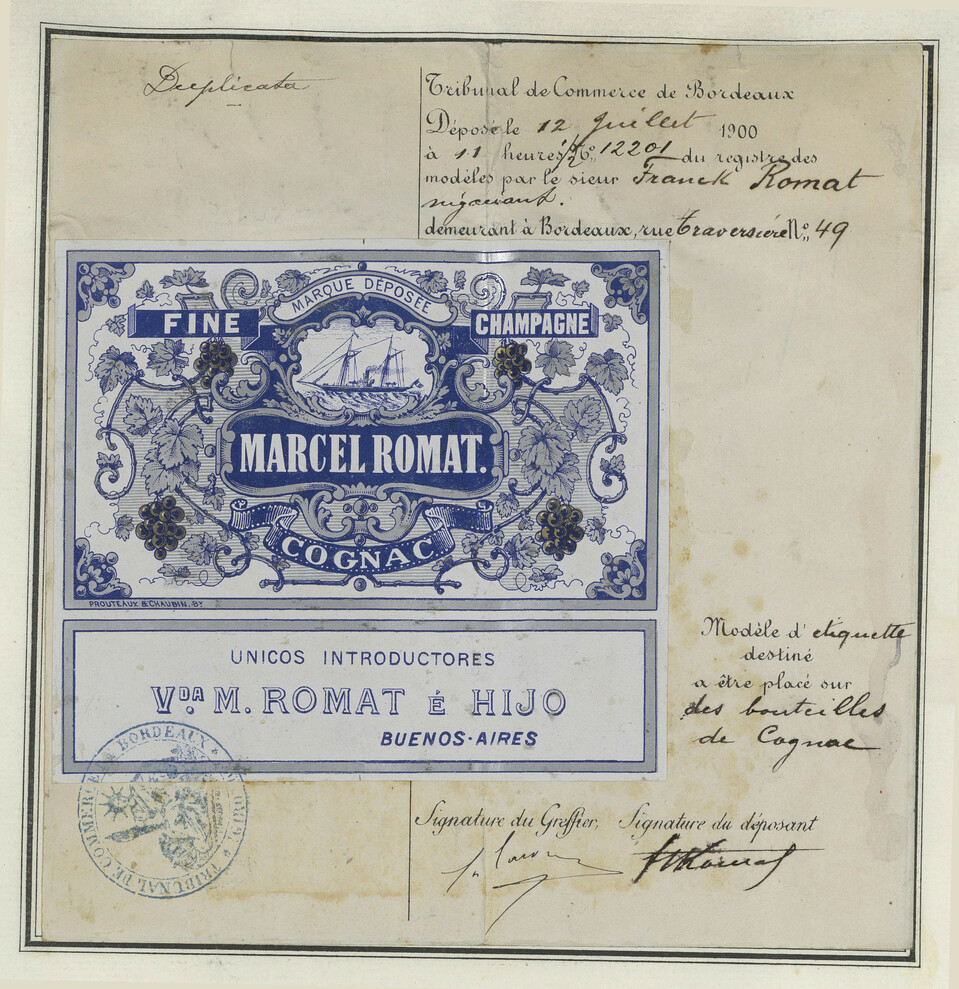 Duplicata
Tribunal de Commerce de Bordeaux
Déposé le 12 Juillet 1900
à 11 heures 1/2 No. 12201 du registre des
modèles par le sieur Franck Romat
négociant.
demeurant à Bordeaux, rue Traversière No. 49
MARQUE DÉPOSÉE
FINE CHAMPAGNE
MARCEL ROMAT.
COGNAC
PROUTEAUX & CHAUBIN. BX
UNICOS INTRODUCTORES
VDA. M. ROMAT É HIJO
BUENOS-AIRES
Modèle d'etiquette
destiné
a être placé sur
des bouteilles
de Cognac
TRIBUNAL DE COMMERCE DE BORDEAUX
Signature du Greffier, Signature du déposant